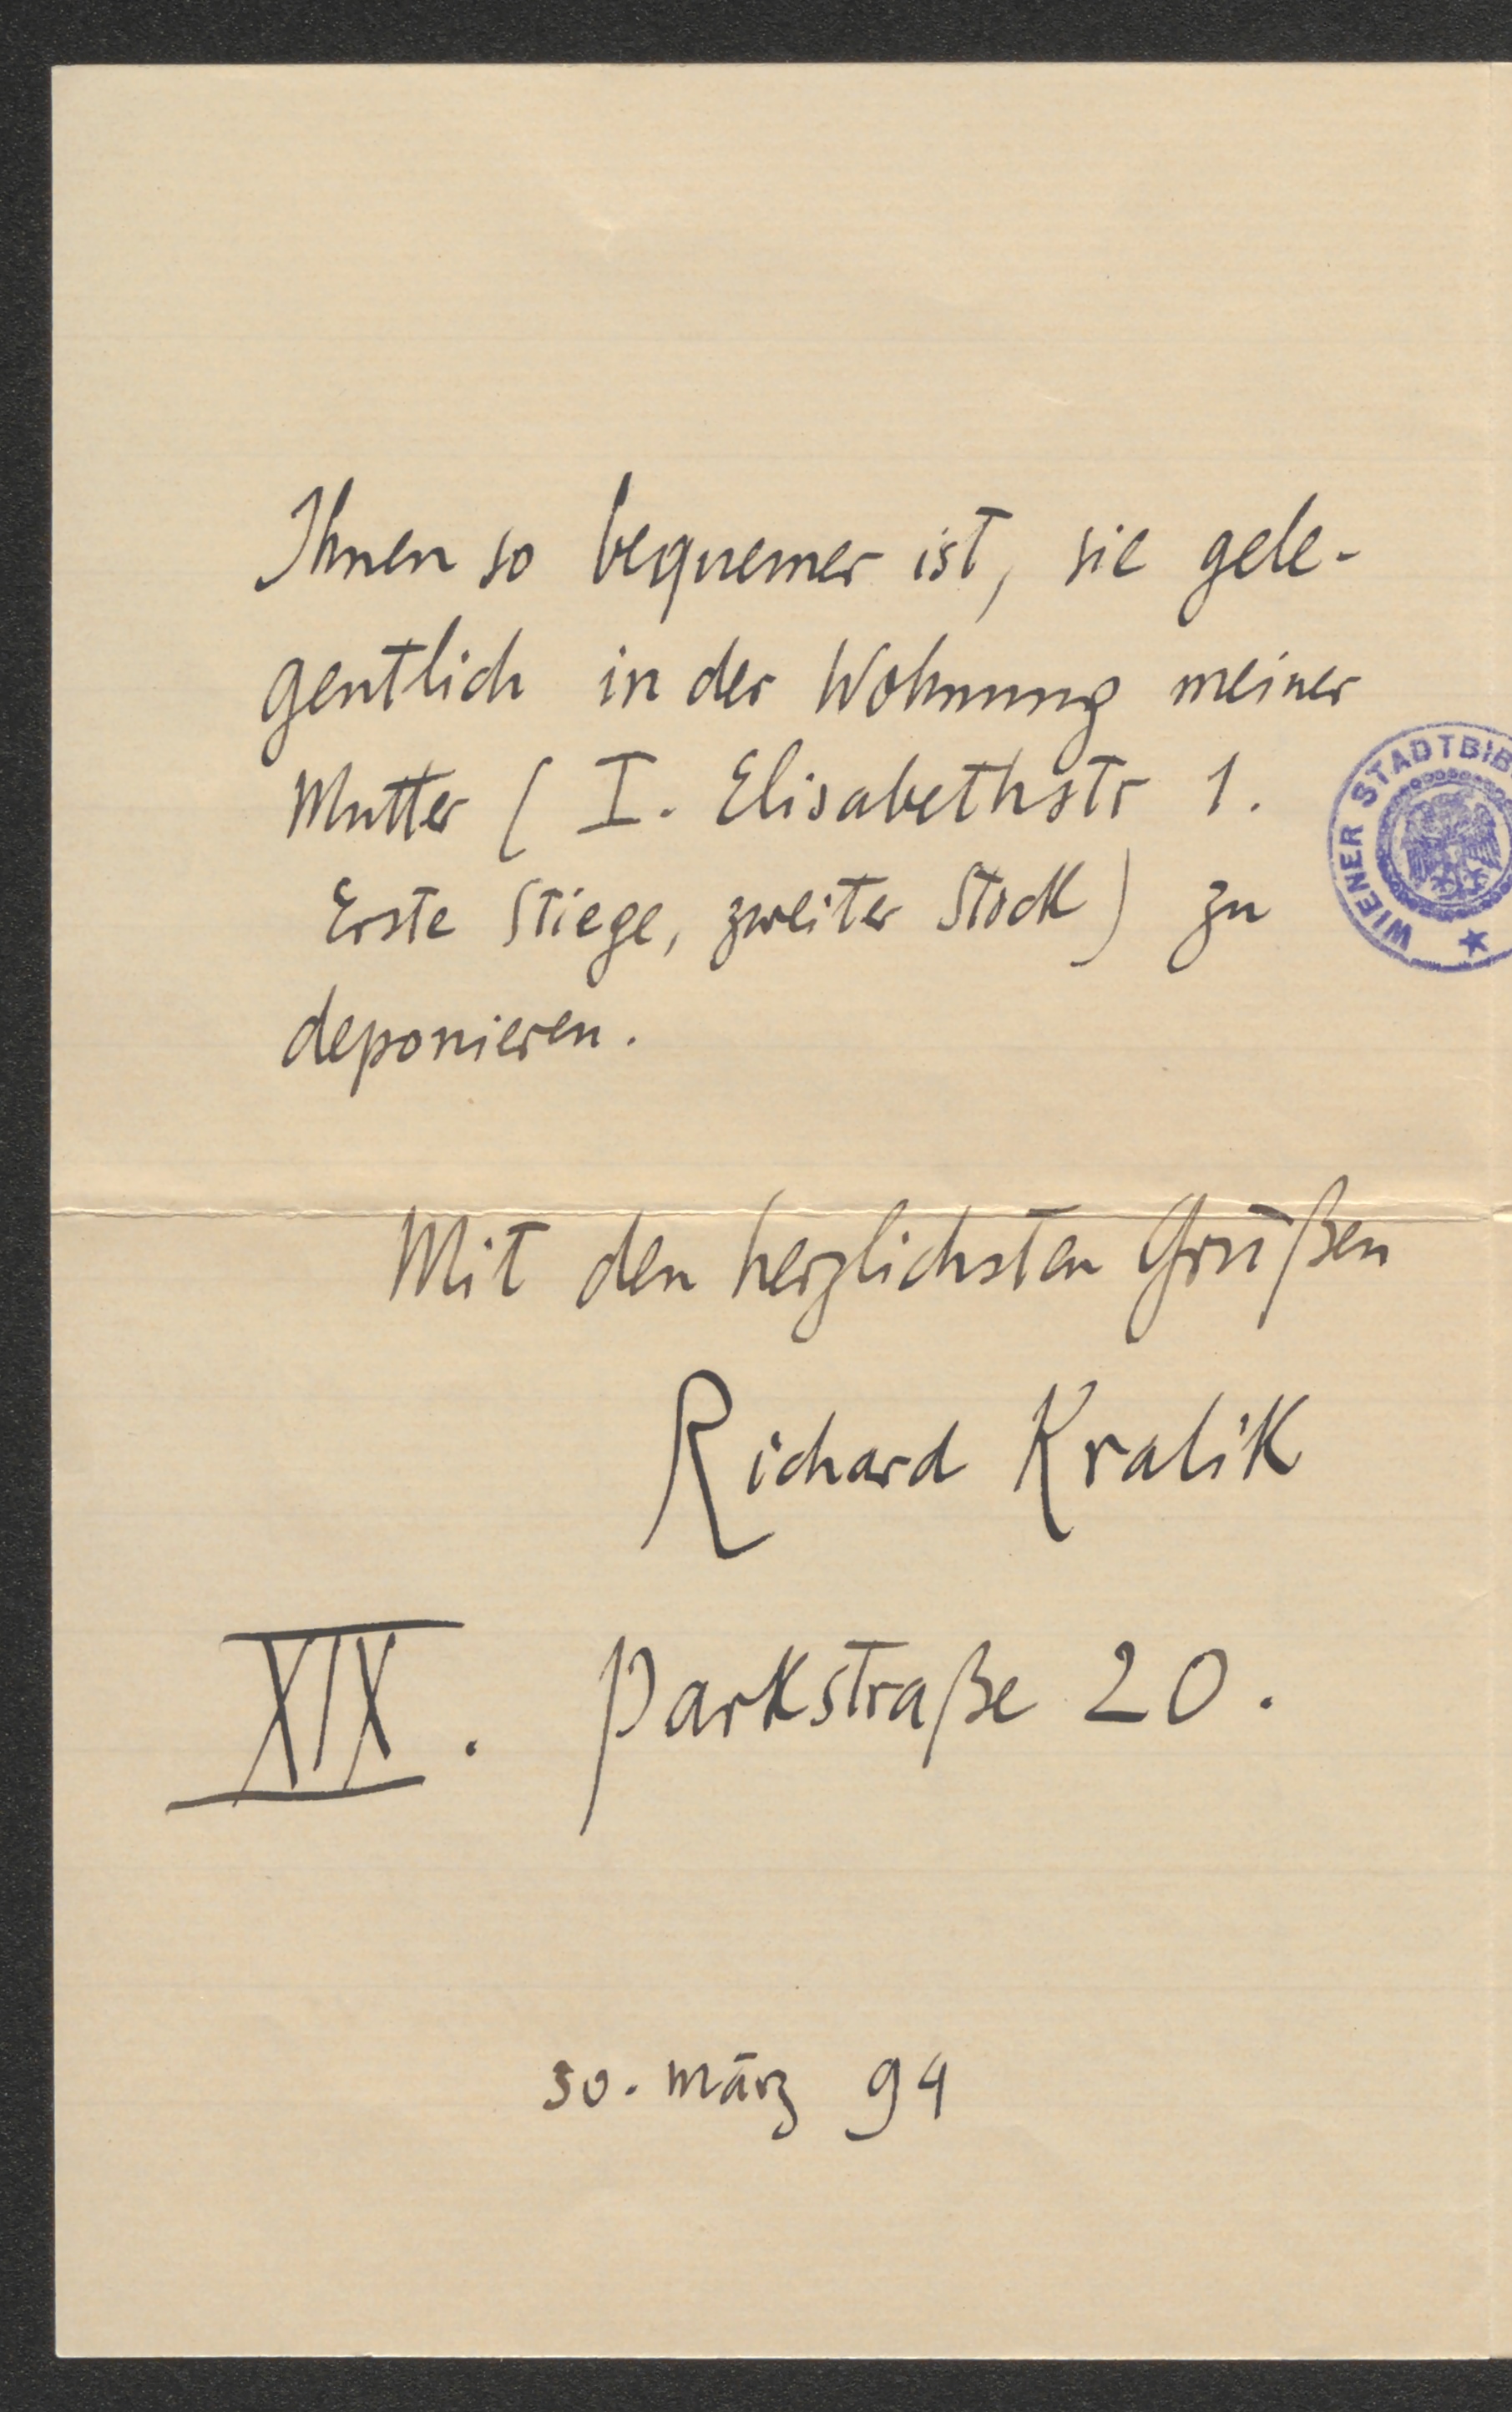 Ihnen so bequemer ist, sie gele-
gentlich in der Wohnung meiner
Mutter (I. Elisabethstr 1.
Erste Stiege, zweiter Stock) zu
deponieren.
WIENER STADTBIB
Mit den herzlichsten Grüßen
Richard Kralik
XIX. Parkstraße 20.
30. März 94